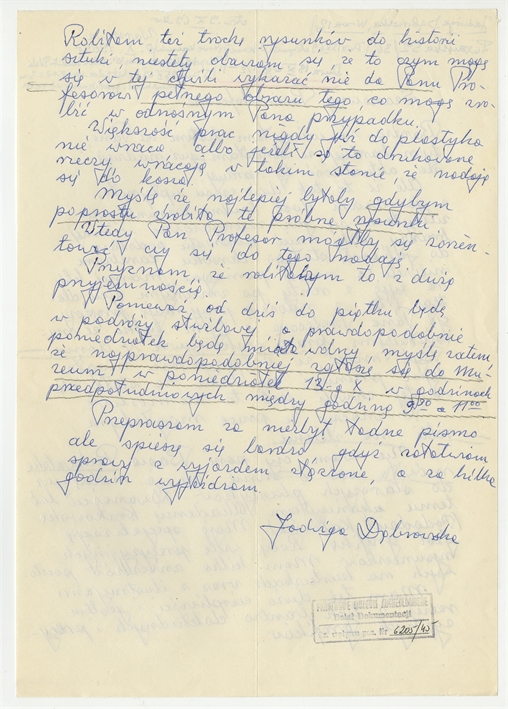 Robiłam też trochę rysunków do historii
sztuki niestety obawiam się, że to czym mogę
się w tej chwili wykazać nie da Panu Pro-
fesorowi pełnego obrazu tego co mogę zro-
bić w odnośnym Pana przypadku.
Większość prac nigdy już do plastyka
nie wraca albo jeżeli są to drukowane
rzeczy wracają w takim stanie że nadają
się do kosza.
Myślę że najlepiej byłoby gdybym
poprostu zrobiła te próbne rysunki
Wtedy Pan Profesor mógłby się zorien-
tować czy się do tego nadaję
Przyznam że robiłabym to z dużą
przyjemnością.
Ponieważ od dziś do piątku będę
w podróży służbowej a prawdopodobnie
poniedziałek będę miała wolny myślę zatem
że najprawdopodobniej zgłoszę się do Mu-
zeum w poniedziałek 12-go X w godzinach
przedpołudniowych między godziną 9⁰⁰ a 11⁰⁰
Przepraszam za niezbyt ładne pismo
ale spieszę się bardzo gdyż załatwiam
sprawy z wyjazdem złączone, a za kilka
godzin wyjeżdżam.
Jadwiga Dąbrowska
Dział Dokumentacji
Nr 6205/45